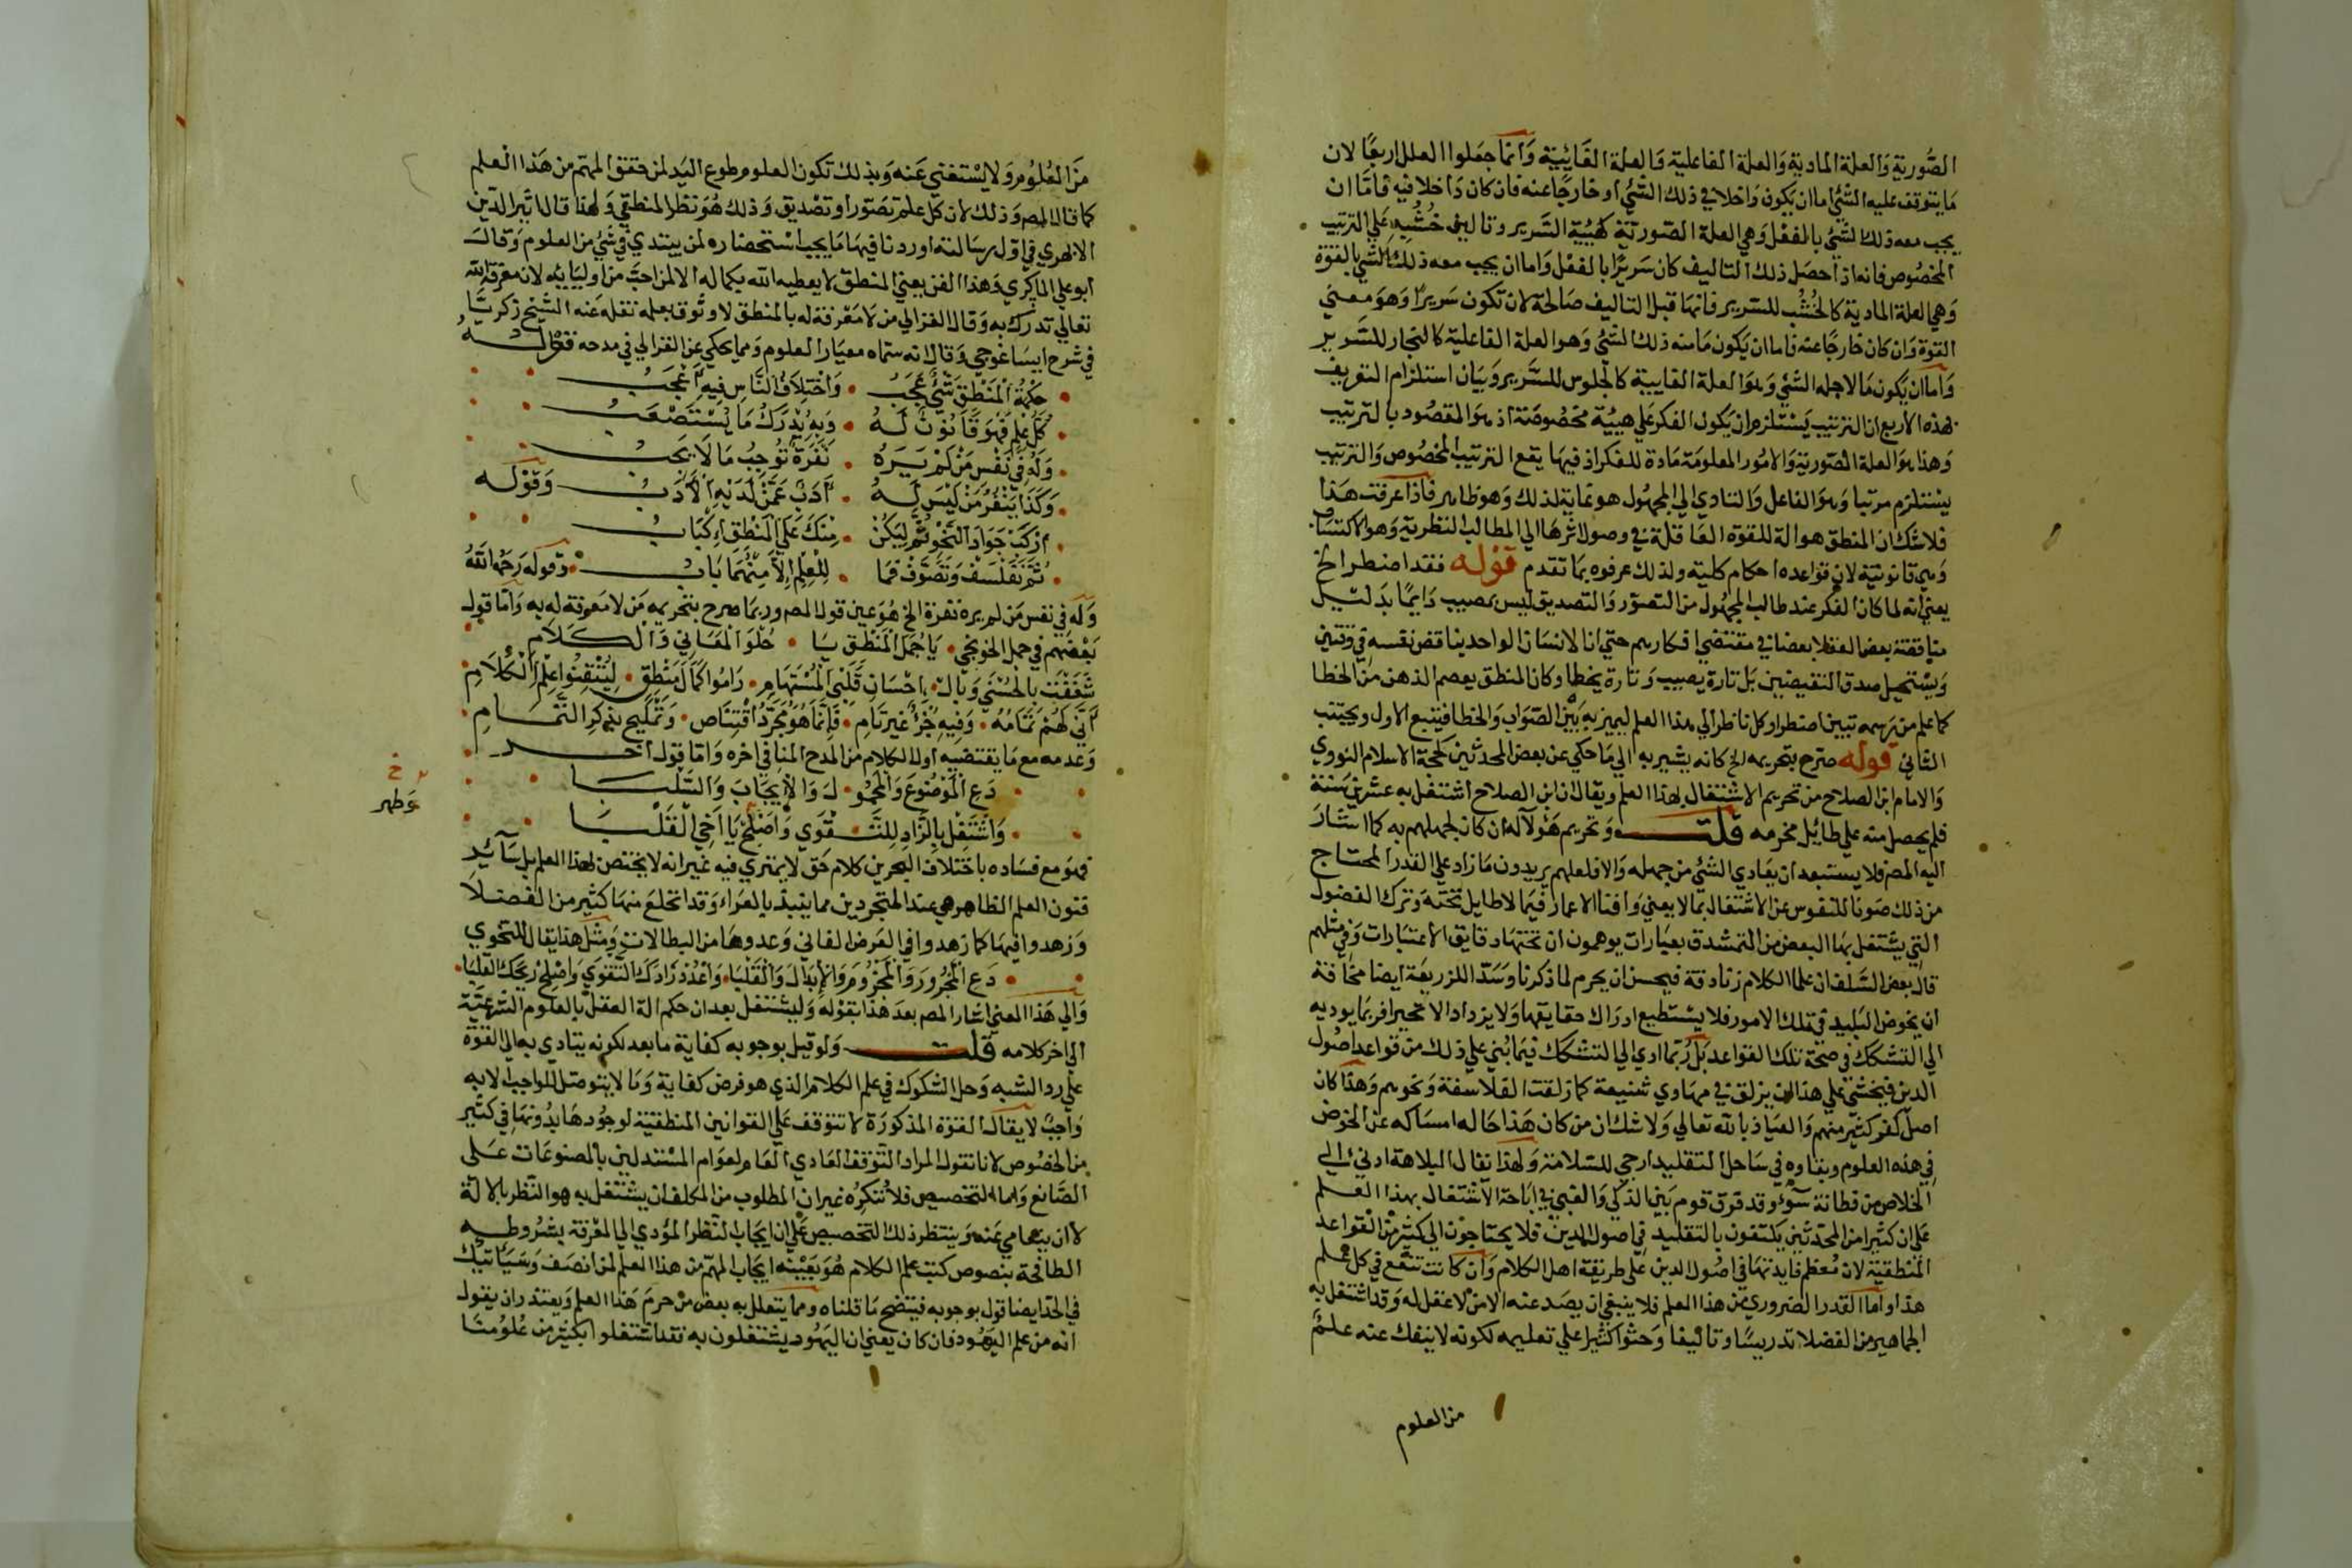 الصورية والعلة المادية والعلة الفاعلية والعلة الغائية وانما جعلوا العلل اربعا لان
ما يتوقف عليه الشئ اما ان يكون داخلا في ذلك الشئ او خارجا عنه فان كان داخلا فيه فاما ان
يجب معه ذلك الشئ بالفعل وهي العلة الصورية كهيئة السرير وتاليف خشبه علي الترتيب
المخصوص فانه اذا حصل ذلك التاليف كان سريرا بالفعل واما ان يجب معه ذلك الشي بالقوة
وهي العلة المادية كالخشب للسرير فانها قبل التاليف صالحة لان تكون سريرا وهو معني
القوة وان كان خارجا عنه فاما ان يكون ما منه ذلك الشئ وهو العلة الفاعلية كالنجار للسرير
واما ان يكون ما لاجله الشئ وهو العلة الغايية كالجلوس للسرير وبيان استلزام التعريف
لهذه الاربع ان الترتيب يستلزم ان يكون الفكر علي هيئة مخصوصة اذ هو المقصود بالترتيب
وهذا هو العلة الصورية والامور المعلومة مادة للفكر اذ فيها يقع الترتيب المخصوص والترتيب
يستلزم مرتبا وهو الفاعل والتادي الي المجهول هو غاية لذلك وهو ظاهر فاذا عرفت هذا
فلا شك ان المنطق هو الة للقوة العاقلة في وصول اثرها الي المطالب النظرية وهو الاكتساب
وهي قانونية لان قواعده احكام كلية ولذلك عرفوه بما تقدم قوله فقد اضطر الخ
يعني انه لما كان الفكر عند طالب المجهول من التصور والتصديق ليس بمصيب دايما بدليل
مناقضة بعض العقلا بعضا في مقتضي افكارهم حتي ان الانسان الواحد يناقض نفسه في وقتين
ويستحيل صدق النقيضين بل تارة يصيب وتارة يخطا وكان المنطق يعصم الذهن من الخطا
كما علم من رسمه تبين اضطرار كل ناظر الي هذا العلم ليميز به بين الصواب والخطا فيتبع الاول ويجتنب
الثاني قوله صرح بتحريمه الخ كانه يشير به الي ما حكي عن بعض المحدثين كحجة الاسلام النووي
والامام ابن الصلاح من تحريم الاشتغال بهذا العلم ويقال ان ابن الصلاح اشتغل به عشرين سنة
فلم يحصل منه علي طائل فحرمه قلت وتحريم هولاء له ان كان لجهلهم به كما اشار
اليه المصر فلا يستبعد ان يعادي الشئ من جهله والا فلعلهم يريدون ما زاد علي القدر المحتاج
من ذلك صونا للنفوس عن الاشتغال بما لا يعني وافنا الاعمار فيما لا طايل تحته وترك الفضول
التي يشتغل بها البعض من التمشدق بعبارات يوهمون ان تحتها دقايق الاعتبارات وفي مثلهم
قال بعض السلف ان علما الكلام زنادقة فيحسن ان يحرم لما ذكرنا وسدا للذريعة ايضا مخافة
ان يخوض البليد في تلك الامور فلا يستطيع ادراك حقايقها ولا يزداد الا تحيرا فربما يوديه
الي التشكك في صحة تلك القواعد بل ربما ادي الي التشكك فيما بني علي ذلك من قواعد اصول
الدين فيخشي علي هذا ان يزلق في مهاوي شنيعة كما زلقت الفلاسفة ونحوهم وهذا كان
اصل كفر كثير منهم والعياذ بالله تعالي ولا شك ان من كان هذا حاله امساكه عن الخوض
في هذه العلوم وبقاوه في ساحل التقليد ارجي للسلامة ولهذا يقال البلاهة ادني الي
الخلاص من فطانة سوء وقد فرق قوم بين الذكي والغبي في اباحة الاشتغال بهذا العلم
علي ان كثيرا من المحدثين يكتفون بالتقليد في اصول الدين فلا يحتاجون الي كثير من القواعد
المنطقية لان معظم فايدتها في اصول الدين علي طريقة اهل الكلام وان كانت تنفع في كل علم
هذا واما القدر الضروري من هذا العلم فلا ينبغي ان يصد عنه الا من لا عقل له وقد اشتغل به
الجماهير من الفضلا تدريسا وتاليفا وحثوا كثيرا علي تعليمه لكونه لا ينفك عنه علم
من العلوم
من العلوم ولا يستغني عنه وبذلك تكون العلوم طوع اليد لمن حقق المهم من هذا العلم
كما قال المصر وذلك لان كل علم تصور او تصديق وذلك هو نظر المنطقي ولهذا قال اثير الدين
الابهري في اول رسالته اوردنا فيها ما يجب استحضاره لمن يبتدي في شئ من العلوم وقال
ابو علي الماكري وهذا الفن يعني المنطق لا يعطيه الله بكماله الا لمن احب من اوليايه لان معرفة الله
تعالي تدرك به وقال الغزالي من لا معرفة له بالمنطق لا وثوق بعلمه نقله عنه الشيخ زكريا
في شرح ايساغوجي وقال انه سماه معيار العلوم ومما يحكي عن الغزالي في مدحه قوله
حكمة المنطق شئ عجب • واختلاف الناس فيه اعجب
كل علم فهو قانون له • وبه يدرك ما يستصعب
وله في نفس من لم يره • نفرة توجب ما لا يجب
وكذا ينفر من ليس له • ادب عمن لديه الادب وقوله
اركب جواد النحو ثم ليكن • منك علي المنطق اركباب
ثم تفلسف وتصوف فما • للعلم الا منهما باب وقوله رحمه الله
وله في نفس من لم يره نفرة الخ هو عين قول المصر وربما صرح بتحريمه من لا معرفة له به واما قول
بعضهم في جمل الخونجي • يا جمل المنطق يا • حلو المعاني والكلام
شغفت بالحسني وبال • احسان قلبي المستهام • راموا كمال منطق • ليتقنوا علم الكلام
اني لهم تمامه • وفيه جزء غير تام • فانما هو مجرد اقتناص • وتمليح بذكر التمام
وعدمه مع ما يقتضيه اول الكلام من المدح المنافي اخره واما قول اخر
دع الموضوع والمحمو • ل والايجاب والسلبا
واشتغل بالزاد للتـ • قوي واصلح يا اخي القلبا
وطهر خ
فهو مع فساده باختلاف البحرين كلام حق لا يمتري فيه غير انه لا يختص بهذا العلم بل سائر
فنون العلم الظاهر هي عند المتجردين مما ينبذ بالعراء وقد انخلع منها كثير من الفضلا
وزهدوا فيها كما زهدوا في العرض الفاني وعدوها من البطالات ومثل هذا يقال للنحوي
دع المجرور والمجزوم والابدال والقلبا • واعدد زادك التقوي واصلح ويحك القلبا
والي هذا المعني اشار المصر بعد هذا بقوله وليشتغل بعد ان حكم الة العقل بالعلوم الشرعية
الي اخر كلامه قلت ولو قيل بوجوبه كفاية ما بعد لكونه يتادي به الي القوة
علي رد الشبه وحل الشكوك في علم الكلام الذي هو فرض كفاية وما لا يتوصل للواجب الا به
واجب لا يقال القوة المذكورة لا تتوقف علي القوانين المنطقية لوجودها بدونها في كثير
من الخصوص لانا نقول المراد التوقف العادي العام لعوام المستدلين بالمصنوعات علي
الصانع واما التخصيص فلا ننكره غير ان المطلوب من المكلف ان يشتغل به هو النظر بالالة
لا ان يتعامي عنه وينتظر ذلك التخصيص علي ان ايجاب النظر المؤدي الي المعرفة بشروطه
الطافحة بنصوص كتب علم الكلام هو بعينه ايجاب المهم من هذا العلم لمن انصف وسياتيك
في الحد ايضا قول بوجوبه فيتضح ما قلناه ومما يتعلل به بعض من حرم هذا العلم ويعتذر ان يقول
انه من علم اليهود فان كان يعني ان اليهود يشتغلون به فقد اشتغلوا بكثير من علومنا